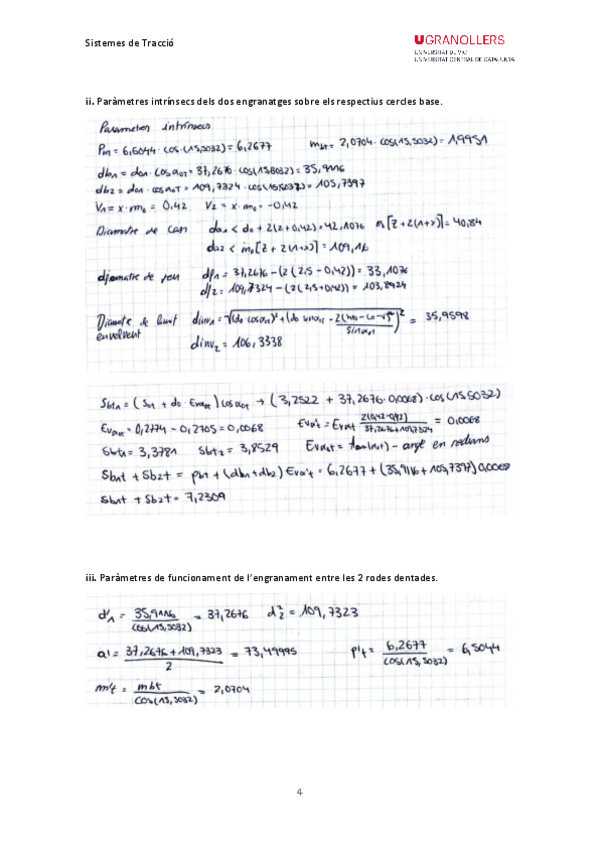 Sistemes de Tracció
UGRANOLLERS
UNIVERSITAT DE VIC
UNIVERSITAT CENTRAL DE CATALUNYA
ii. Paràmetres intrínsecs dels dos engranatges sobre els respectius cercles base.
Parametres intrínsecs
Pbt = 6,5044 · cos (15,5032) = 6,2677 mbt = 2,0704 · cos(15,5032) = 1,9951
db1 = do1 · cos αoT = 37,2676 · cos(15,5032) = 35,9116
db2 = do1 · cos αoT = 109,7324 · cos(15,5032) = 105,7397
V1 = x · mo = 0,42 V2 = x · mo = -0,42
Diametre de cap da1 < do + 2(2+0,42) = 42,1076 m[Z + 2(1+x)] = 40,84
da2 < mo[Z + 2(1+x)] = 109,16
diametre de peu df1 = 37,2676 - (2(2,5 - 0,42)) = 33,1076
df2 = 109,7324 - (2(2,5+0,42)) = 103,8924
Diametre de limit
envolvent
= 35,9598
dinv2 = 106,3338
Sbt1 = (Sot + do · Evαot) cos αot → (3,2522 + 37,2676 · 0,0068) · cos(15,5032)
Evαot = 0,2774 - 0,2705 = 0,0068 Evα't = Evαt = 0,0068
Sbt1 = 3,3781 Sbt2 = 3,8529 Evαot = tan(αt) - angle en radians
Sbt1 + Sbt2 = pbt + (db1 + db2) Evα't = 6,2677 + (35,9116 + 105,7397) 0,0068
Sbt1 + Sbt2 = 7,2309
iii. Paràmetres de funcionament de l'engranament entre les 2 rodes dentades.
d'1 = 35,9116 / cos(15,5032) = 37,2676 d'2 = 109,7323
a' = 37,2676 + 109,7323 / 2 = 73,49995 p't = 6,2677 / cos(15,5032) = 6,5044
m't = mbt / cos(15,5032) = 2,0704
4